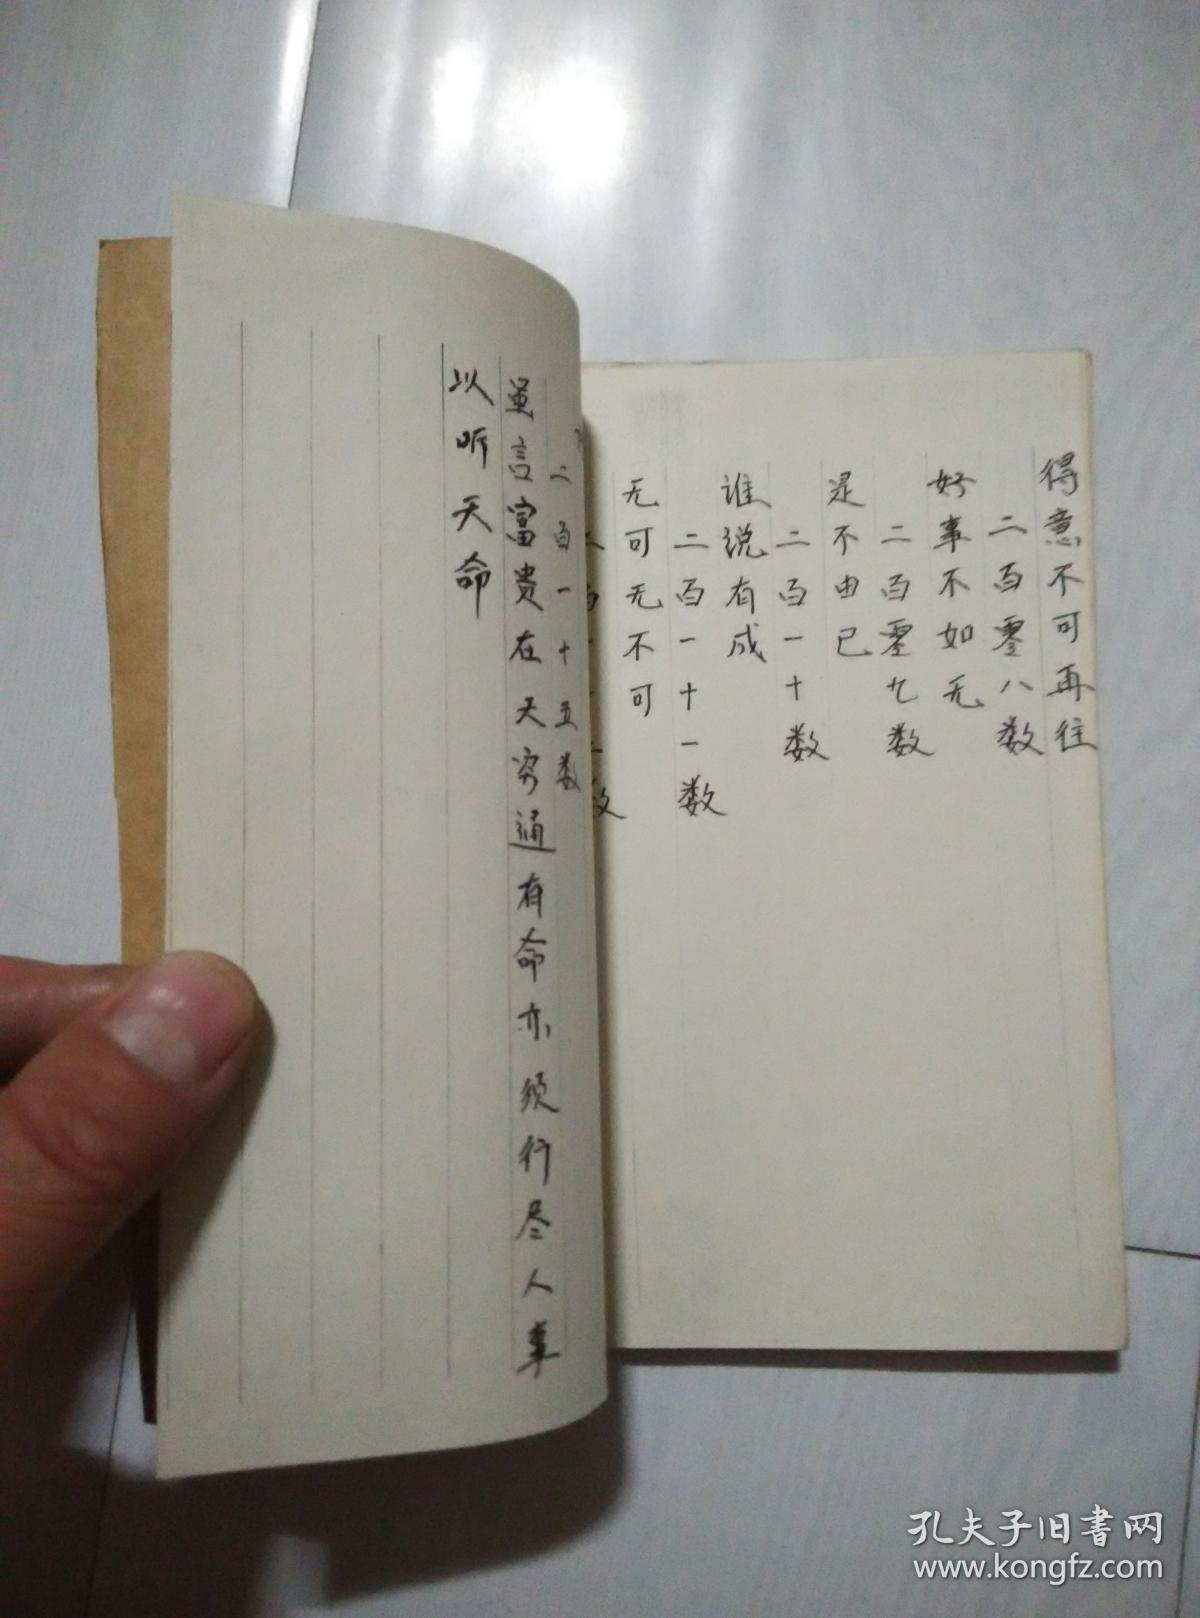 得意不可再往
二百零八数
好事不如无
二百零九数
是不由已
二百一十数
谁说有成
二百一十一数
无可无不可
二百一十五数
虽言富贵在天穷通有命亦须行尽人事
以听天命
孔夫子旧书网
www.kongfz.com